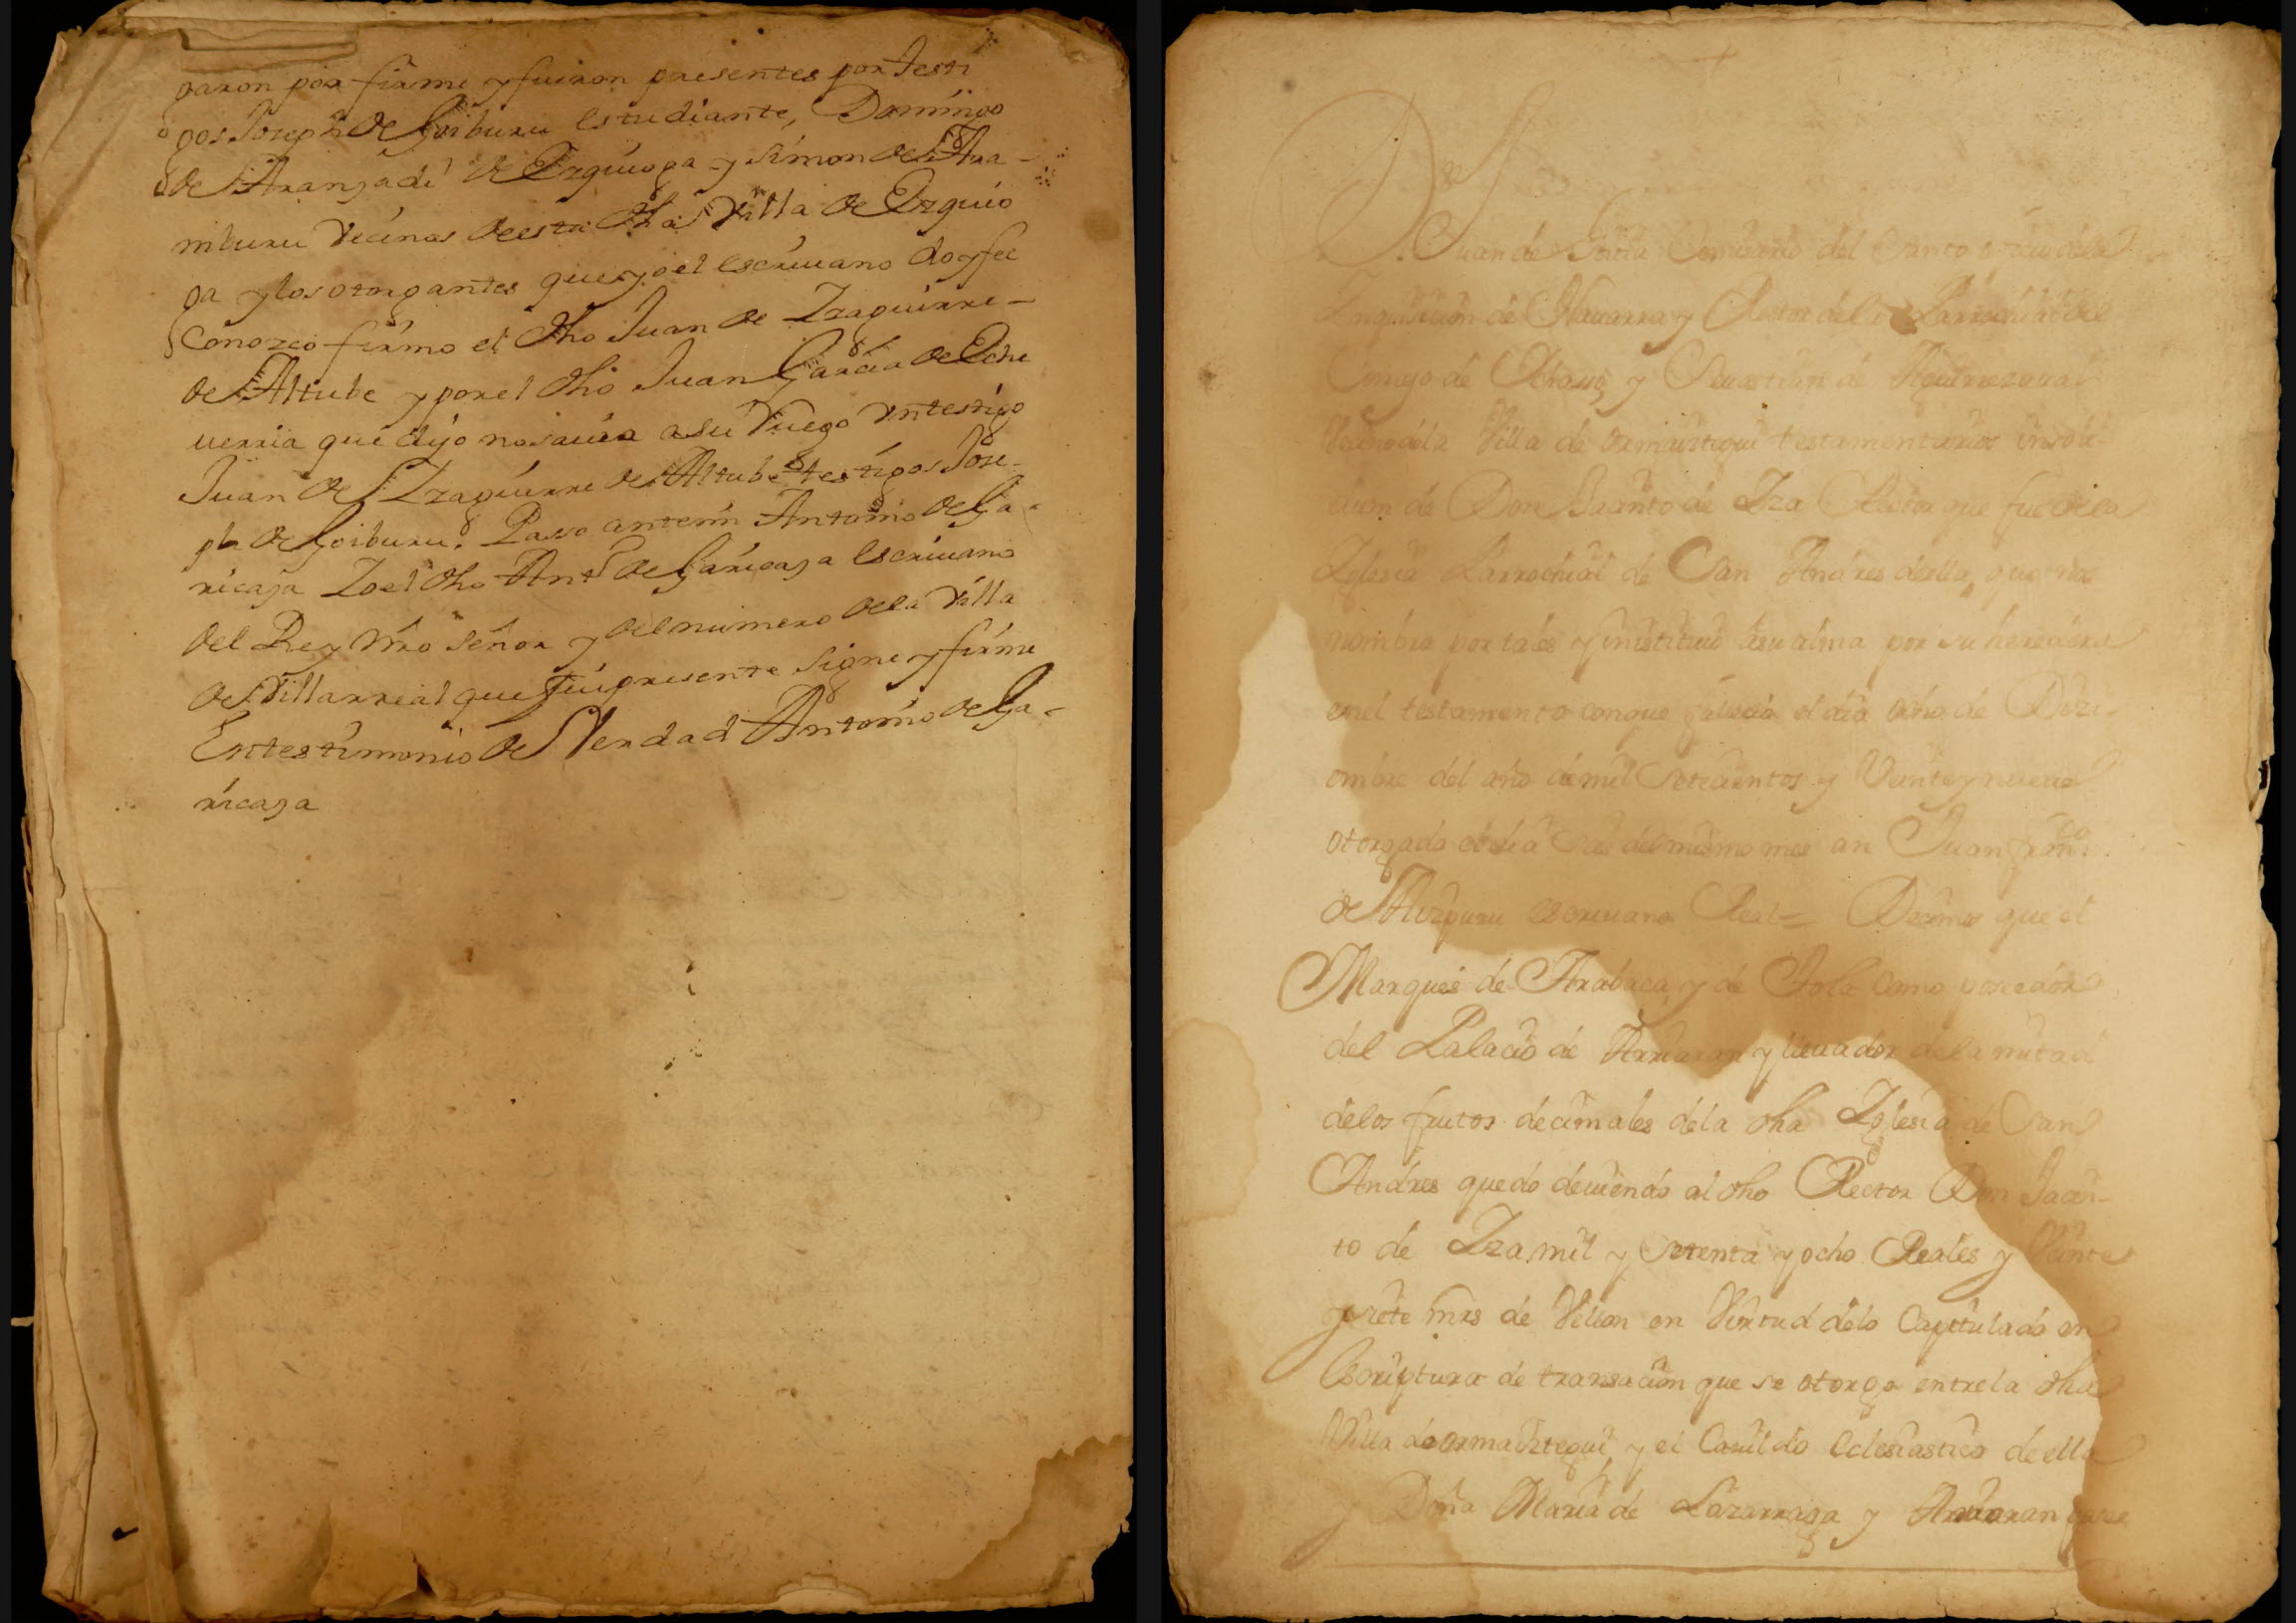 garon por firme y fueron presentes por testi
gos Joseph de Goiburu estudiante, Domingo
de Aranzadi de Ezquioga y Simon de Ara-
mburu vecinos de esta dha Villa de Ezquio
ga y los otorgantes que yo el escriuano doy fee
conozco firmo el dho Juan de Izaguirre
de Altube y por el dho Juan Garcia de Eche
uerria que dijo no sauia a su Ruego Un testigo
Juan de Izaguirre de Altube testigos Jose-
ph de Goiburu. Passo ante mi Antonio de Ga-
ricaza Io el dho Ant.º de Garicaza escriuano
del Rey nro señor y del numero de la Villa
de Villarreal que fui presente signe y firme
En testimonio de Verdad Antonio de Ga-
ricaza
Juan de Comisario del Santo dela
Inquisicion de Nauarra y Rector dela Parrochial del
Concejo de y Seuastian de Aguirrezaual
Vecino dela Villa de Ormaiztegui testamentarios insoli-
dum de Don Jacinto de Iza Rector que fue de la
Iglesia Parrochial de San Andres de ella, que nos
nombro por tales y instituio a su alma por su heredera
en el testamento con que falecio el dia ocho de Dizi-
embre del año de mil setecientos y Veinte y nueue
otorgado el dia del mismo mes an Juan fran.co
de Aizpuru escriuano Real = Decimos que el
Marques de Arabaca, y de Como poseedor
del Palacio de Arriaran y lleuador de la mitad
de los frutos decimales de la dha Iglesia de San
Andres quedo deuiendo al dho Rector Don Jacin-
to de Iza, mil y setenta y ocho Reales y Veinte
y siete mrs de Vellon en Virtud de lo Capitulado en
Escriptura de transacion que se otorgo entre la dha
Villa de Ormaiztegui, y el Cauildo eclesiastico de ella
y Doña Maria de Lazarraga y Arriaran